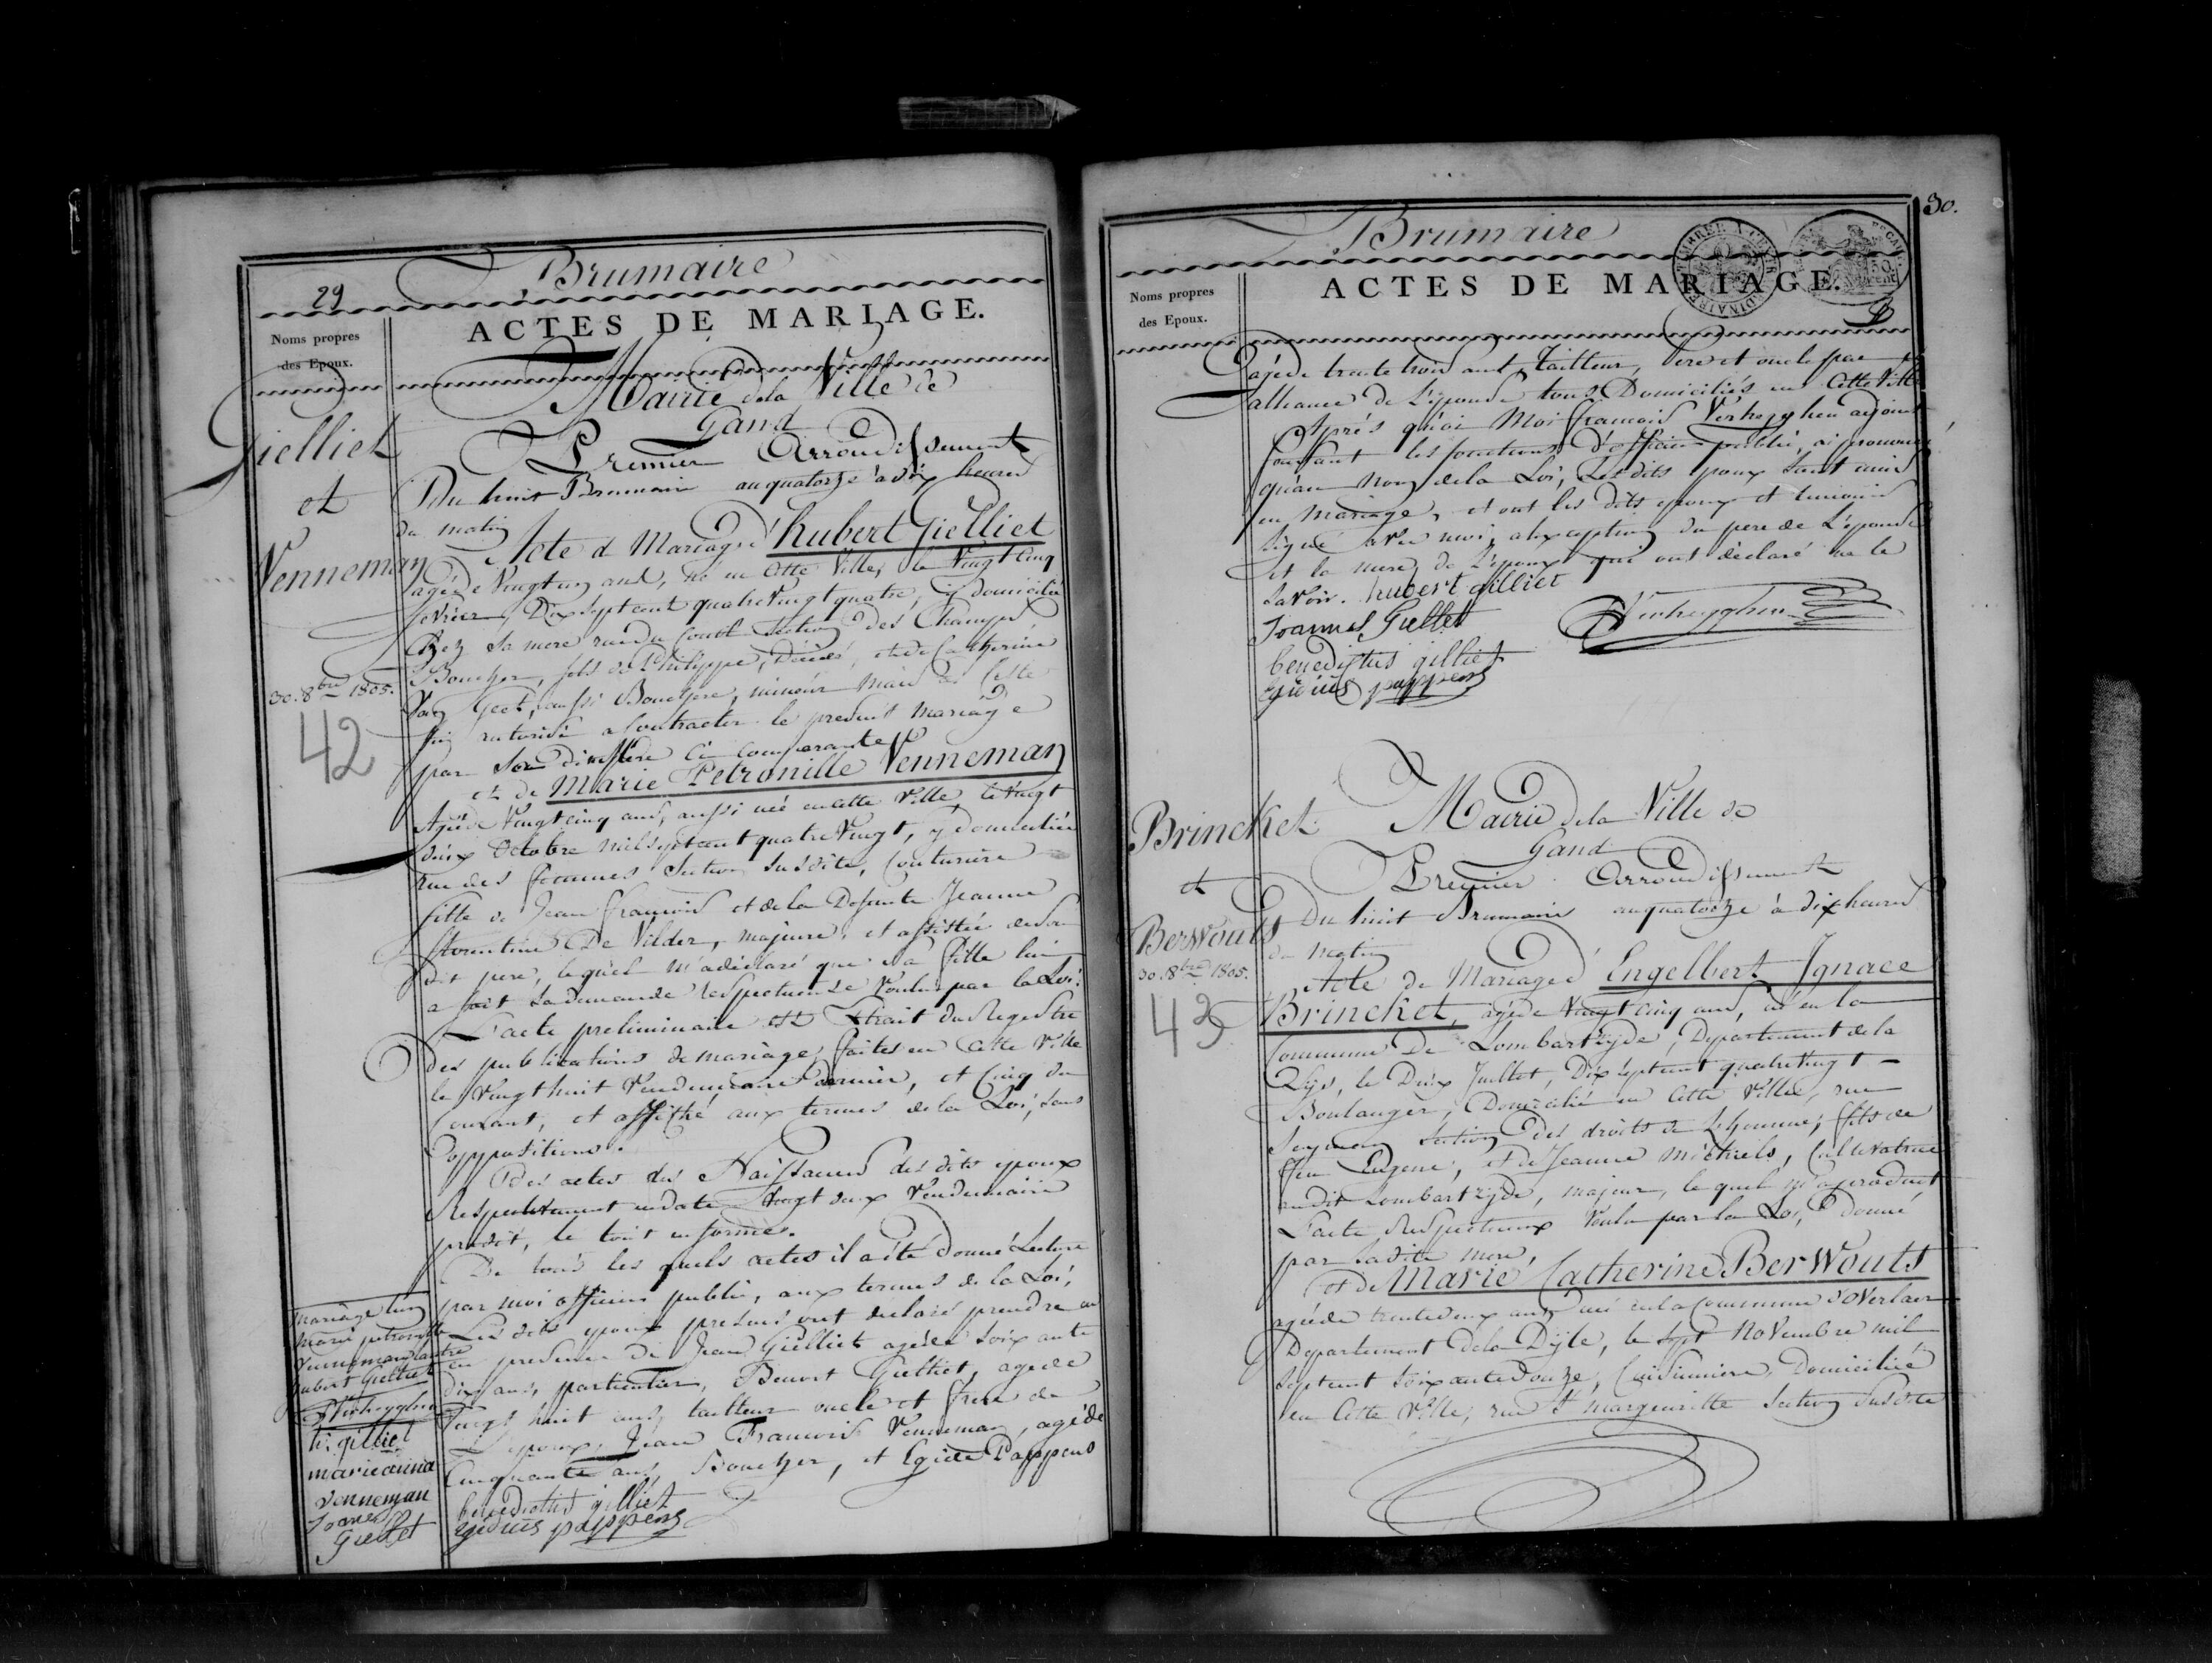 29
Brumaire
Noms propres
des Epoux.
ACTES DE MARIAGE.
Mairie de la Ville de
Gand
Premier Arrondissement
Gielliet
et
Venneman
30. 8bre 1805.
42
Du huit Brumaire an quatorze à dix heures
du matin
Acte d Mariage d'hubert Gielliet
agé de Vingt un ans, né en Cette Ville, le Vingt Cinq
fevrier Dix Sept cent quatre Vingt quatre, y Domicilié
Chez Sa mere rue du Section des Champs
Boucher, fils de Philippe, Décédé, et de Catherine
Van Geet, aussi Bouchere, mineur mais à Cette
fin autorisé a Contracter le present Mariage
par Sa dite Mere Ci Comparante
et de Marie Petronille Venneman
Agée de Vingt cinq ans, aussi née en cette Ville, le Vingt
deux Octobre mil sept cent quatre Vingt, y domiciliée
rue des femmes Section Susdite, Couturiere
fille de Jean francois et de la Defunte Jeanne
florentine De Vilder, majeure, et assistée de Son
dit pere, lequel m'a déclaré que Sa fille lui
a fait La demande respectueuse Voulue par la Loi.
L'acte preliminaire est Extrait du Registre
des publications de mariage, faites en Cette Ville
le Vingt huit Vendemiaire dernier, et Cinq du
Courant, et affiché aux termes de la Loi, sans
oppositions.
Des actes des Naissances des dits epoux
Respectivement en date Vingt deux Vendemiaire
predit, le tout en formes.
De tous les quels actes il a été Donné Lecture
par moi officier public, aux termes de la Loi,
Les dits epoux presens ont declaré prendre en
mariage l'un
marie petronille
Venneman l'autre
hubert Gielliet
Verheyghen
hu gilliet
marie anna
venneman
Joannes
Giellet
en presence de Jean Gielliet agé de Soixante
dix ans, particulier, Benoit Gielliet, agé de
Vingt huit ans, tailleur oncle et frere de
L'epoux, Jean Francois Venneman, agé de
Cinquante ans, Boucher, et Egide Pappens
benedictus gilliet
egidius pappens
30.
Brumaire
TIMBRE A
Noms propres
des Epoux.
ACTES DE MARIAGE.
agé de trente trois ans Tailleur, Pere et oncle par
alliance de L'epouse tous Domiciliés en Cette Ville
Après quoi Moi francois Verheyghen adjoint
faisant les fonctions d'officier public, ai prononcé
qu'au Nom de la Loi, Les dits epoux Sont unis
en mariage, et ont les dits epoux et temoins
Signé avec moi, a l'exception du pere de L'epouse
et la mere de L'epoux qui ont déclaré ne le
Savoir. hubert gilliet
Joannes Giellet
Verheyghen
benedictus gilliet
egidius pappens
Brincket
et
Berwouts
30. 8bre 1805.
43
Mairie de la Ville de
Gand
Premier Arrondissement
Du huit Brumaire an quatorze à dix heures
du matin
Acte de Mariage d'Engelbert Ignace
Brincket, agé de Vingt Cinq ans, né en la
Commune De Lombartzyde, Departement de la
Lijs, le Deux Juillet, Dix sept cent quatre Vingt
Boulanger, Domicilié en Cette Ville, rue
Section des droits de L'homme, fils de
feu Eugene, et de Jeanne Michiels, Cultivatrice
audit Lombartzijde, majeur, le quel m'a produit
L'acte Respectueux Voulu par la Loi, Donné
par Sa dite mere,
et de Marie Catherine BerWouts
agée de trente deux ans née en la Commune d'OVerlaer
Departement de la Dijle, le Sept Novembre mil
Sept cent Soixante Douze, Cuisiniere, Domiciliée
en Cette Ville, rue Ste margueritte Section Susdite